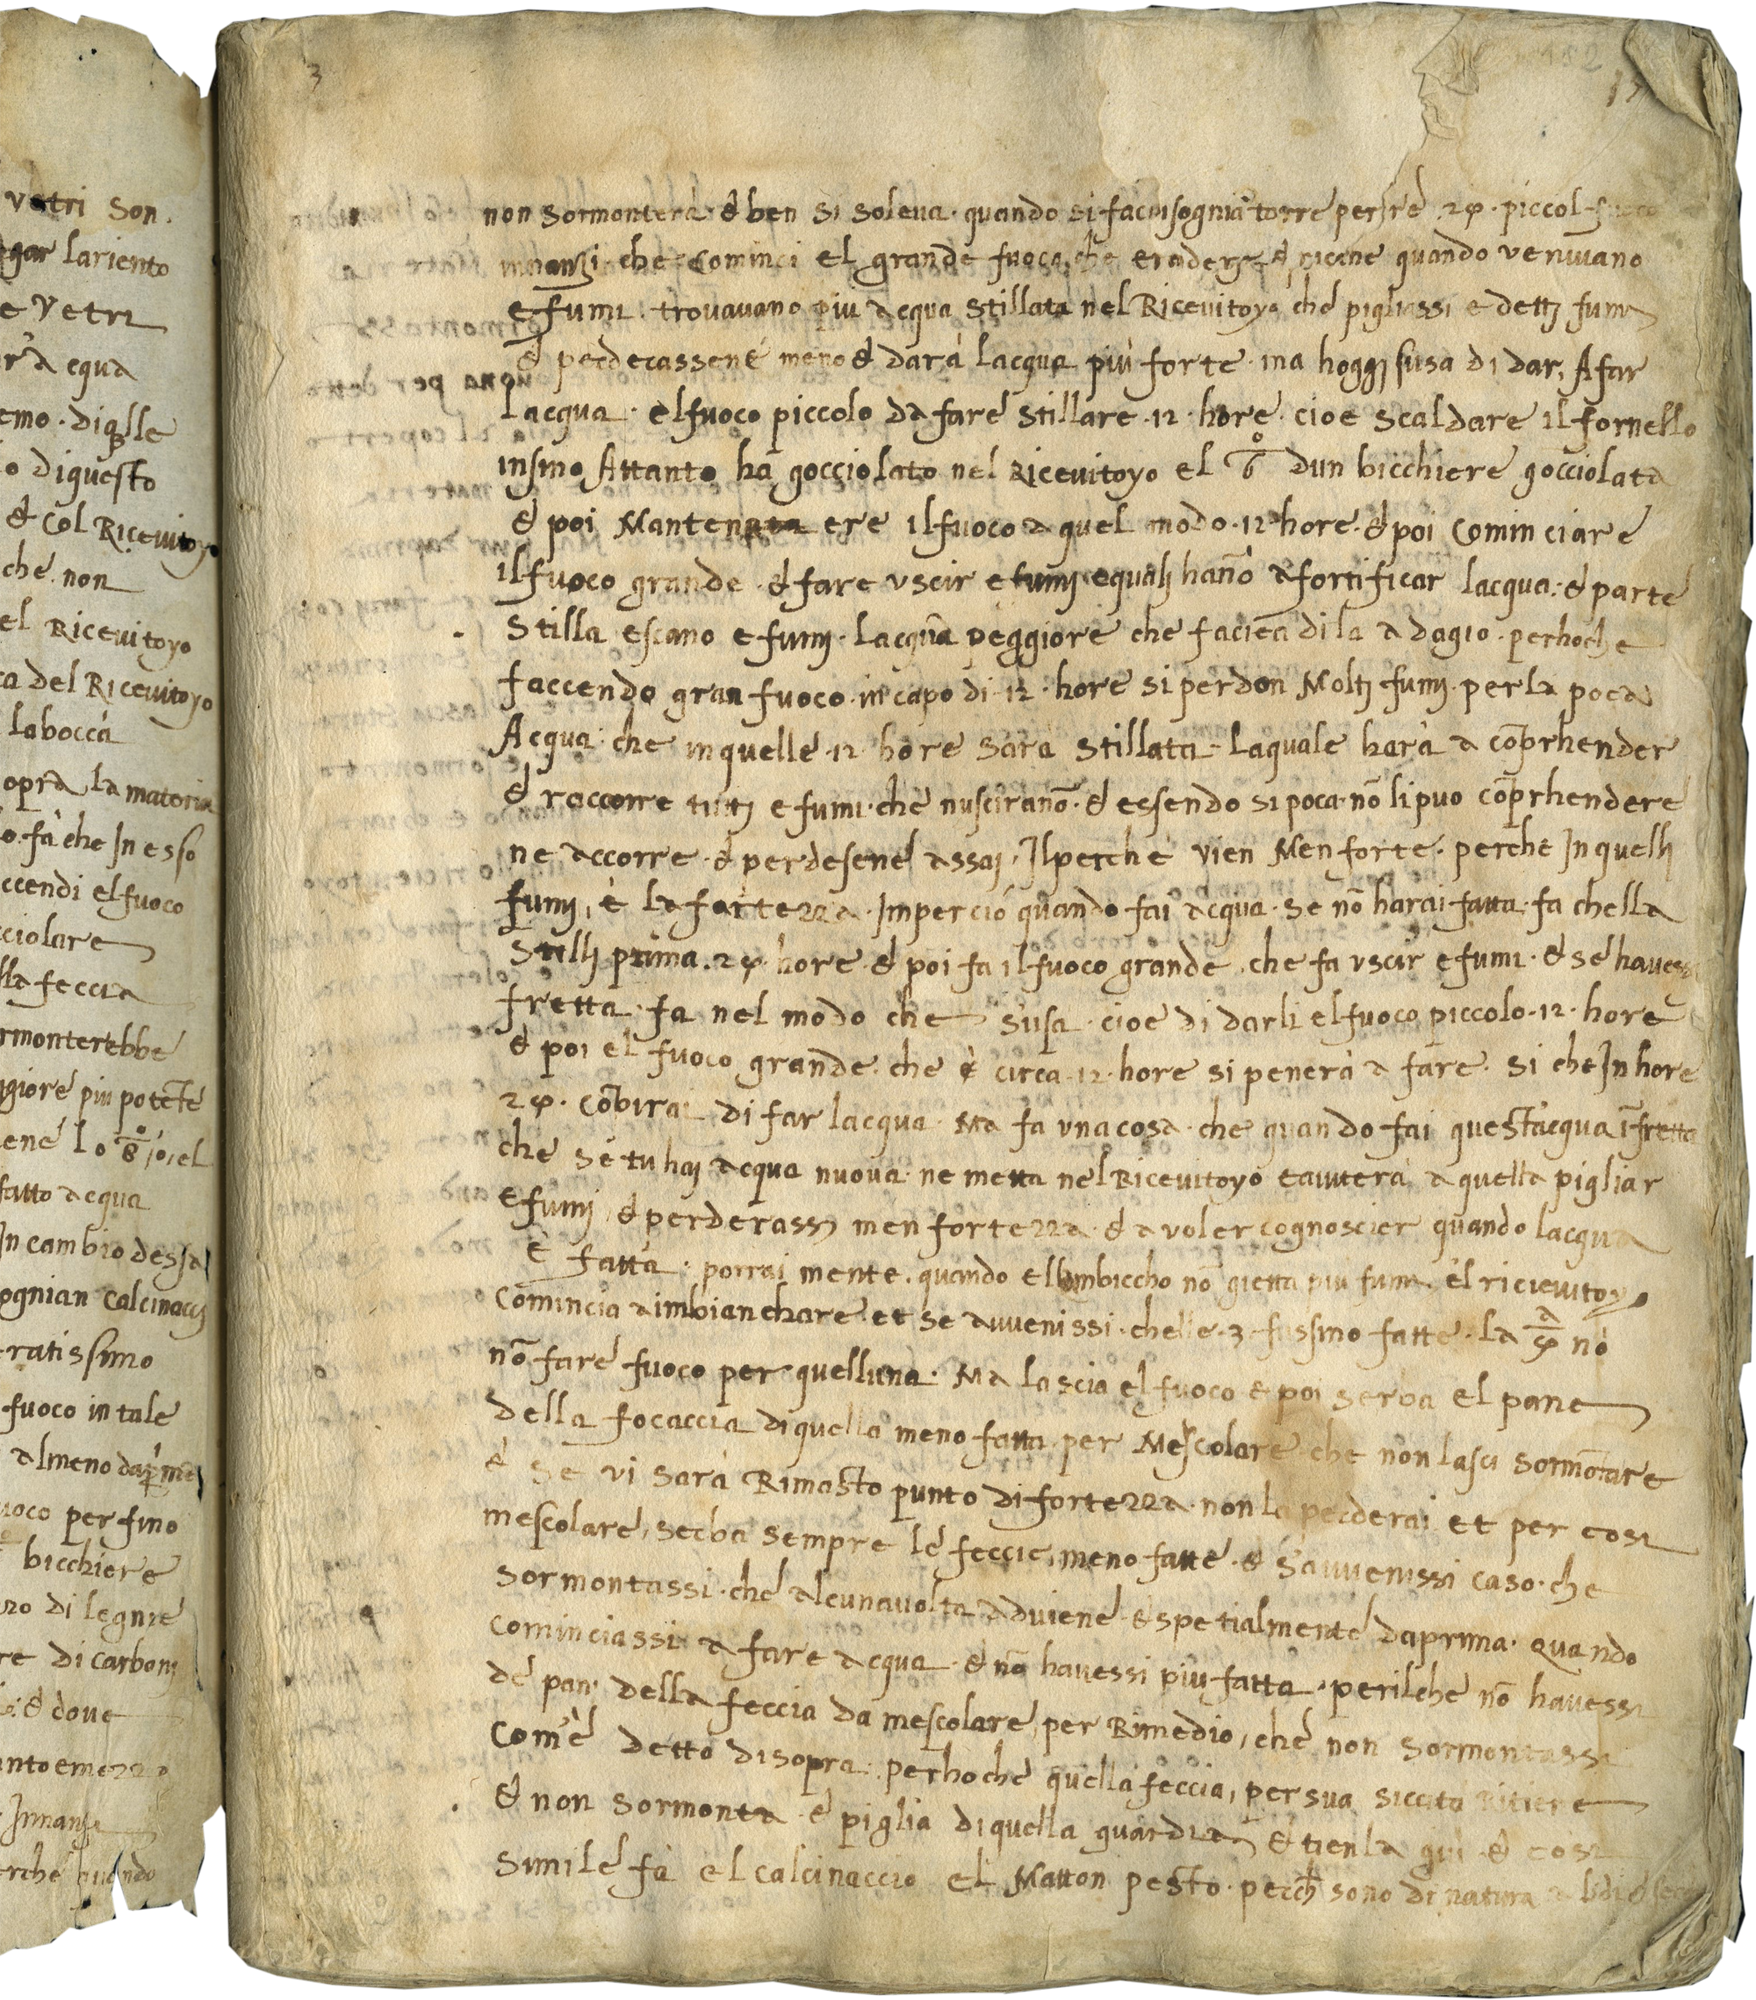 vetri son.
lariento
e Vetri
equa
emo . di qlle
o diquesto
& Col Ricevitoyo
che non
el Ricevitoyo
ca del Ricevitoyo
labocca
opra la materia
o. fa che In esso
ccendi el fuoco
cciolare
lla feccia
rmonterebbe
ggiore piu potete
fatto acqua
In cambio dessa
ognian calcinacci
ratissimo
fuoco in tale
almeno
uoco per fino
bicchiere
di legnie
re di carboni
& dove
Innanzi
erche quando
3
non sormonterà & ben si soleva · quando si fa torre perire 24 · piccol fuoco
innanzi · che Cominci el grande fuoco che quando venivano
e fumi trovavano piu acqua stillata nel Ricevitoyo che pigliassi e detti fumi
& perdecassene meno & darà lacqua più forte · ma hoggi susa di dar, A far
lacqua · el fuoco piccolo da fare stillare · 12 · hore · cioe scaldare il fornello
insino Attanto ha gocciolato nel Ricevitoyo el 6° dun bicchiere gocciolata
& poi Mantenere il fuoco a quel modo · 12 hore · & poi cominciare
il fuoco grande · & fare uscir e fumi equali hano a fortificar lacqua · & parte
Stilla escano e fumi · lacqua peggiore che faciea di la adagio · perhoche
faccendo gran fuoco · in capo di · 12 · hore si perdon Molti fumi · per la poca
Acqua · che in quelle · 12 hore sara stillata · laquale harà a coprhender
& raccorre tutti e fumi · che nusciranō · & essendo si poca · nō li puo cōprhendere
ne accorre · & perdesene assai, Ilperche vien Men forte · perche In quelli
fumi, è la fortezza · Imperciò quando fai acqua · se nō harai fatta · fa chella
Stilli prima · 24 · hore · & poi fa il fuoco grande · che fa uscir e fumi · & se havessi
fretta · fa nel modo che susa · cioe di darli el fuoco piccolo · 12 · hore
& poi el fuoco grande · che è circa · 12 · hore si penerà a fare · si che In hore
24 · di far lacqua · Ma fa una cosa · che quando fai questacqua ī fretta
che se tu hai acqua nuova · ne metta nel Ricevitoyo eaiuterà a quella pigliar
e fumi, & perderassi men fortezza · & a voler cognoscier quando lacqua
è fatta · porrai mente · quando el lambiccho nō gietta piu fumi · el ricievitoyo
comincia a imbianchare · et se avvenissi · chelle · 3 · fussino fatte · la 4ª nō
nō fare fuoco per quelluna · Ma lascia el fuoco e poi serba el pane
della focaccia di quella meno fatta · per Mescolare · che non lasci sormōtare
& se vi sarà Rimasto punto di fortezza · non la perderai et per cosi
mescolare, serba sempre le feccie, meno fatte · & Savvenissi caso · che
sormontassi · che alcunavolta adviene · & spetialmente daprima · Quando
cominciassi a fare acqua · & nō havessi più fatta · perilche nō havessi
de pan· della feccia da mescolare, per Rimedio, che non sormontassi
com'è detto disopra · perhoche quella feccia, per sua siccita ritiene
& non sormonta · & piglia di quella guardia & tienla qui · & cosi
simile fa el calcinaccio el Matton pesto · perch sono di natura